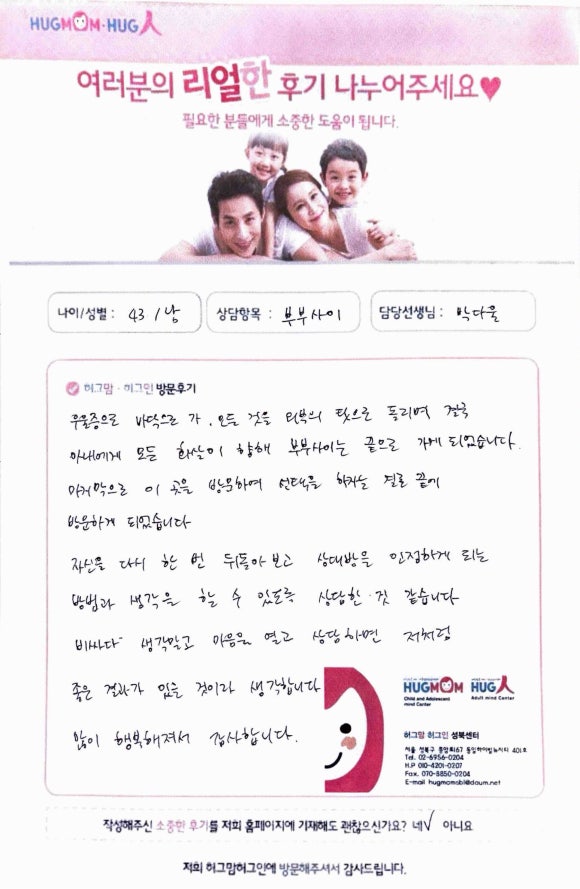 HUGMOM·HUG人
여러분의 리얼한 후기 나누어주세요♥
필요한 분들에게 소중한 도움이 됩니다.
나이/성별 : 43 / 남
상담항목 : 부부사이
담당선생님 : 박다울
허그맘·허그인 방문후기
우울증으로 바닥으로 가, 모든 것을 타인의 탓으로 돌리며 결국
아내에게 모든 화살이 향해 부부사이는 끝으로 가게 되었습니다.
마지막으로 이 곳을 방문하여 선택을 하자는 결론 끝에
방문하게 되었습니다
자신을 다시 한 번 뒤돌아보고 상대방을 인정하게 되는
방법과 생각을 할 수 있도록 상담한 것 같습니다
비싸다 생각말고 마음을 열고 상담하면 저처럼
좋은 결과가 있을 것이라 생각합니다
많이 행복해져서 감사합니다.
HUGMOM HUG人
Child and Adolescent mind Center
Adult mind Center
허그맘 허그인 성북센터
서울 성북구 동소문로67 동일하이빌뉴시티 401호
Tel. 02-6956-0204
H.P 010-4201-0207
Fax. 070-8850-0204
E-mail hugmomsbi@daum.net
작성해주신 소중한 후기를 저희 홈페이지에 기재해도 괜찮으신가요? 네√ 아니요
저희 허그맘허그인에 방문해주셔서 감사드립니다.